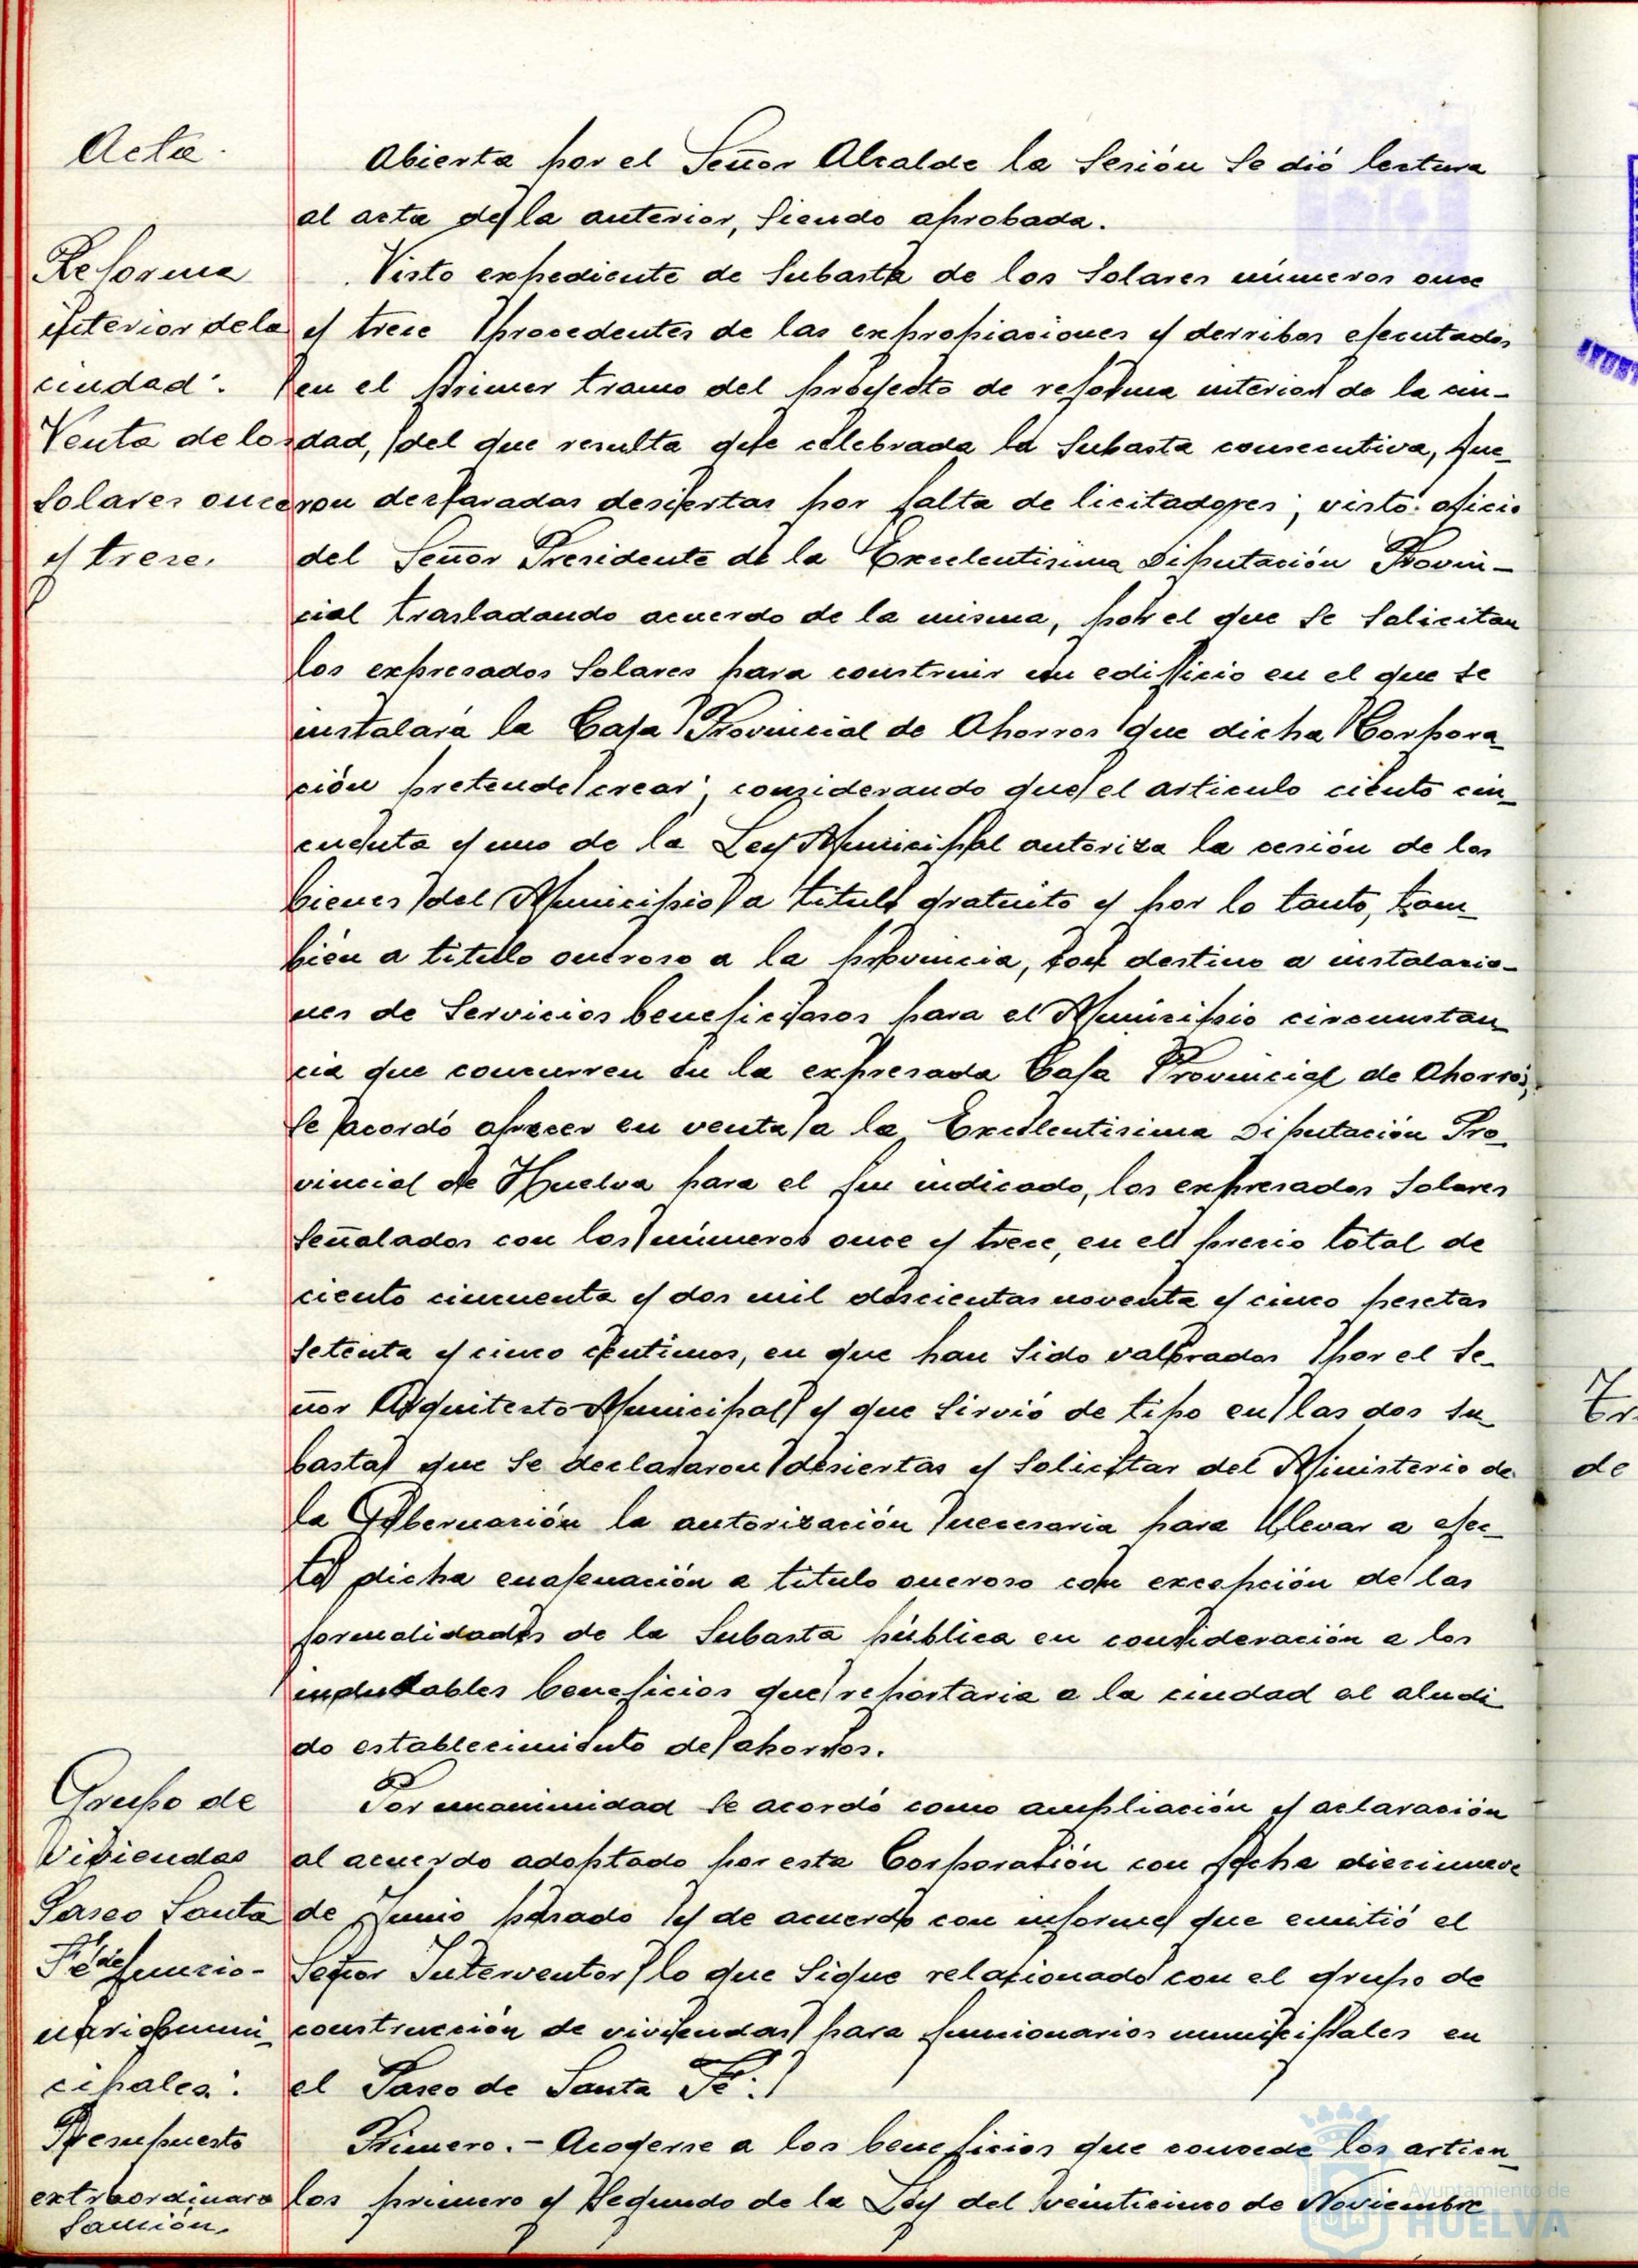 Acta.
Abierta por el Señor Alcalde la Sesión Se dió lectura
al acta de la anterior, Siendo aprobada.
Reforma
interior de la
ciudad.
Venta de los
Solares once
y trece.
Visto expediente de Subasta de los Solares números once
y trece procedentes de las expropiaciones y derribos ejecutados
en el primer tramo del proyecto de reforma interior de la ciu-
dad, del que resulta que celebrada la Subasta consecutiva, fue-
ron declaradas desiertas por falta de licitadores; visto oficio
del Señor Presidente de la Excelentisima Diputación Provin-
cial trasladando acuerdo de la misma, por el que Se Solicitan
los expresados Solares para construir un edificio en el que se
instalará la Caja Provincial de Ahorros que dicha Corpora-
ción pretende crear; considerando que el articulo ciento cin-
cuenta y uno de la Ley Municipal autoriza la cesión de los
bienes del Municipio a titulo gratuito y por lo tanto, tam-
bién a titulo oneroso a la provincia, con destino a instalacio-
nes de Servicios beneficiosos para el Municipio circunstan-
cia que concurren en la expresada Caja Provincial de Ahorros,
Se acordó ofrecer en venta a la Excelentisima Diputación Pro-
vincial de Huelva para el fin indicado, los expresados Solares
Señalados con los números once y trece, en el precio total de
ciento cincuenta y dos mil doscientas noventa y cinco pesetas
Setenta y cinco céntimos, en que han Sido valorados por el Se-
ñor Arquitecto Municipal y que Sirvió de tipo en las dos Su-
bastas que Se declararon desiertas y Solicitar del Ministerio de
la Gobernación la autorización necesaria para llevar a efec-
to dicha enajenación a titulo oneroso con excepción de las
formalidades de la Subasta pública en consideración a los
indudables beneficios que reportaria a la ciudad el aludi-
do establecimiento de ahorros.
Grupo de
Viviendas
Paseo Santa
Fé de funcio-
narios muni-
cipales.
Presupuesto
extraordinaro
Sanción.
Por unanimidad Se acordó como ampliación y aclaración
al acuerdo adoptado por esta Corporación con fecha diecinueve
de Junio pasado y de acuerdo con informe que emitió el
Señor Interventor lo que Sigue relacionado con el grupo de
construcción de viviendas para funcionarios municipales en
el Paseo de Santa Fé:
Primero.- Acogerse a los beneficios que concede los articu-
los primero y Segundo de la Ley del veinticinco de Noviembre
de
Ayuntamiento de
HUELVA